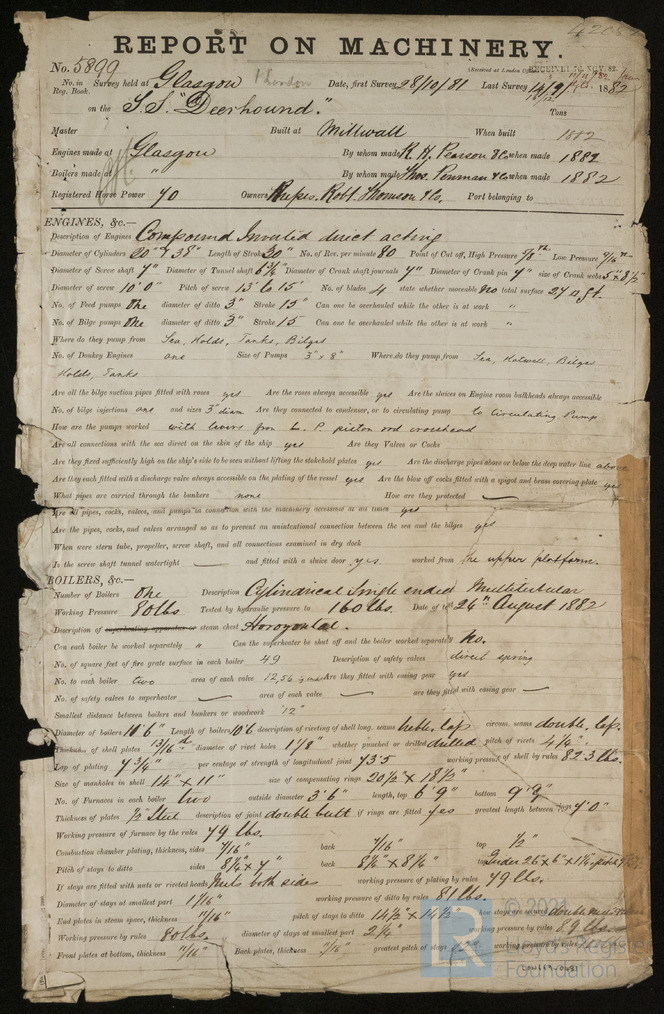 REPORT ON MACHINERY.
No. 5899 (Received at London Office RECEIVED 10. NOV. 82.
No. in Survey held at Glasgow & London Date, first Survey 28/10/81 Last Survey 1882
Reg. Book.
on the S.S. "Deerhound." Tons
Master Built at Millwall When built 1882
Engines made at Glasgow By whom made R. H. Pearson & Co. when made 1882
Boilers made at " By whom made Thos. Penman & Co. when made 1882
Registered Horse Power 70 Owners Robt. Thomson & Co. Port belonging to
ENGINES, &c.—
Description of Engines Compound Inverted direct acting
Diameter of Cylinders 20" & 38" Length of Stroke 30" No. of Rev. per minute 80 Point of Cut off, High Pressure 5/8 th Low Pressure
Diameter of Screw shaft 7" Diameter of Tunnel shaft 6 3/4" Diameter of Crank shaft journals 7" Diameter of Crank pin 7" size of Crank webs 5" x 8 1/2"
Diameter of screw 10' 0" Pitch of screw 13' to 15' No. of blades 4 state whether moveable No total surface 27 sq ft.
No. of Feed pumps One diameter of ditto 3" Stroke 15" Can one be overhauled while the other is at work "
No. of Bilge pumps One diameter of ditto 3" Stroke 15 Can one be overhauled while the other is at work "
Where do they pump from Sea, Holds, Tanks, Bilges
No. of Donkey Engines one Size of Pumps 3" x 8" Where do they pump from Sea, Hotwell, Bilges
Holds, Tanks
Are all the bilge suction pipes fitted with roses yes Are the roses always accessible yes Are the sluices on Engine room bulkheads always accessible
No. of bilge injections one and sizes 3" diam Are they connected to condenser, or to circulating pump to Circulating Pump
How are the pumps worked with levers from L. P. piston rod crosshead
Are all connections with the sea direct on the skin of the ship yes Are they Valves or Cocks
Are they fixed sufficiently high on the ship's side to be seen without lifting the stokehold plates yes Are the discharge pipes above or below the deep water line above
Are they each fitted with a discharge valve always accessible on the plating of the vessel yes Are the blow off cocks fitted with a spigot and brass covering plate yes
What pipes are carried through the bunkers none How are they protected —
Are all pipes, cocks, valves, and pumps in connection with the machinery accessible at all times yes
Are the pipes, cocks, and valves arranged so as to prevent an unintentional connection between the sea and the bilges yes
When were stern tube, propeller, screw shaft, and all connections examined in dry dock
Is the screw shaft tunnel watertight — and fitted with a sluice door yes. worked from the upper platform.
BOILERS, &c.—
Number of Boilers One Description Cylindrical Single ended Multitubular
Working Pressure 80 lbs Tested by hydraulic pressure to 160 lbs. Date of test 26th August 1882
Description of superheating apparatus or steam chest Horozontal.
Can each boiler be worked separately " Can the superheater be shut off and the boiler worked separately No.
No. of square feet of fire grate surface in each boiler 49 Description of safety valves direct spring
No. to each boiler two area of each valve 12,56 Are they fitted with easing gear yes
No. of safety valves to superheater — area of each valve — are they fitted with easing gear —
Smallest distance between boilers and bunkers or woodwork 12"
Diameter of boilers 10' 6" Length of boilers 10' 6 description of riveting of shell long. seams treble, lap circum. seams double, lap.
Thickness of shell plates 13/16" diameter of rivet holes 1 1/8 whether punched or drilled drilled pitch of rivets 4 1/4"
Lap of plating 7 3/4" per centage of strength of longitudinal joint 73·5 working pressure of shell by rules 82·3 lbs.
Size of manholes in shell 14" x 11" size of compensating rings 20 1/2" x 18 1/2"
No. of Furnaces in each boiler two outside diameter 3' 6" length, top 6' 9" bottom 9' 9"
Thickness of plates 1/2" Steel description of joint double butt if rings are fitted yes greatest length between rings 7' 0"
Working pressure of furnace by the rules 79 lbs.
Combustion chamber plating, thickness, sides 7/16" back 7/16" top 1/2"
Pitch of stays to ditto sides 8 1/4 x 7" back 8 1/4" x 8 1/4"
If stays are fitted with nuts or riveted heads Nuts both sides working pressure of plating by rules 79 lbs.
Diameter of stays at smallest part 1 1/16" working pressure of ditto by rules 81 lbs.
End plates in steam space, thickness 11/16" pitch of stays to ditto 14 1/2" x 14 1/2" how stays are secured
Working pressure by rules 80 lbs. diameter of stays at smallest part 2 1/4" working pressure by rules 89 lbs.
Front plates at bottom, thickness 11/16" Back plates, thickness 11/16" greatest pitch of stays working pressure by rules
© 2021
Lloyd's Register
Foundation